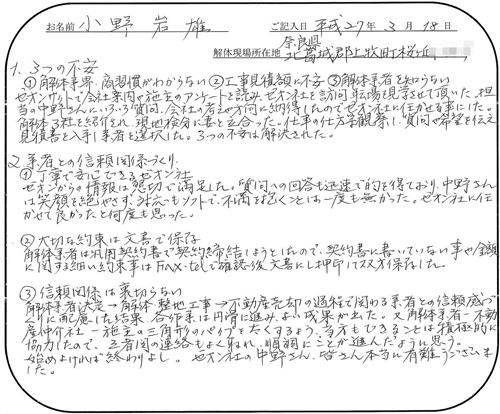 お名前 小野岩雄 ご記入日 平成27年3月18日
解体現場所在地 奈良県
北葛城郡上牧町桜ヶ丘
1. 3つの不安
①解体業界、商習慣がわからない ②工事見積額に不安 ③解体業者を知らない
ゼオンサイトで会社案内や施主のアンケートを読み、ゼオン社を訪問、転場を見学させて頂いた。担
当の中野さんにいろいろ質問、会社の考え方に納得したのでゼオン社に任せる事にした。
解体3社を紹介され、現地検分に妻と立合った。仕事の仕方等観察し、質問や希望を伝え
見積書を入手し業者を選択した。3つの不安は解決された。
2. 業者との信頼関係づくり
①丁寧で安心できるゼオン社
ゼオンからの情報は懇切で満足した。質問への回答も迅速で的を得ており、中野さん
は笑顔を絶やさず、対応もソフトで、不満を抱くことは一度も無かった。ゼオン社に任
かせて良かったと何度も思った。
②大切な約束は文書で保存
解体業者は汎用契約書で契約締結しようとしたので、契約書に書いていない事や金額
に関する細い約束事はFAX・telで確認後文書にし押印して双方保存した。
③信頼関係は裏切らない
解体業者決定→解体・整地工事→不動産売却の過程で関わる業者との信頼感づ
くりに配慮した結果、各作業は円滑に進み、よい成果が出た。又解体業者－不動
産仲介社－施主の三角形のパイプを太くするよう、当方もできることは積極的に
協力したので、三者間の連絡もよく取れ、順調にことが進んだように思う。
始めよければ終わりよし。ゼオン社の中野さん、皆さん本当に有難うございま
した。